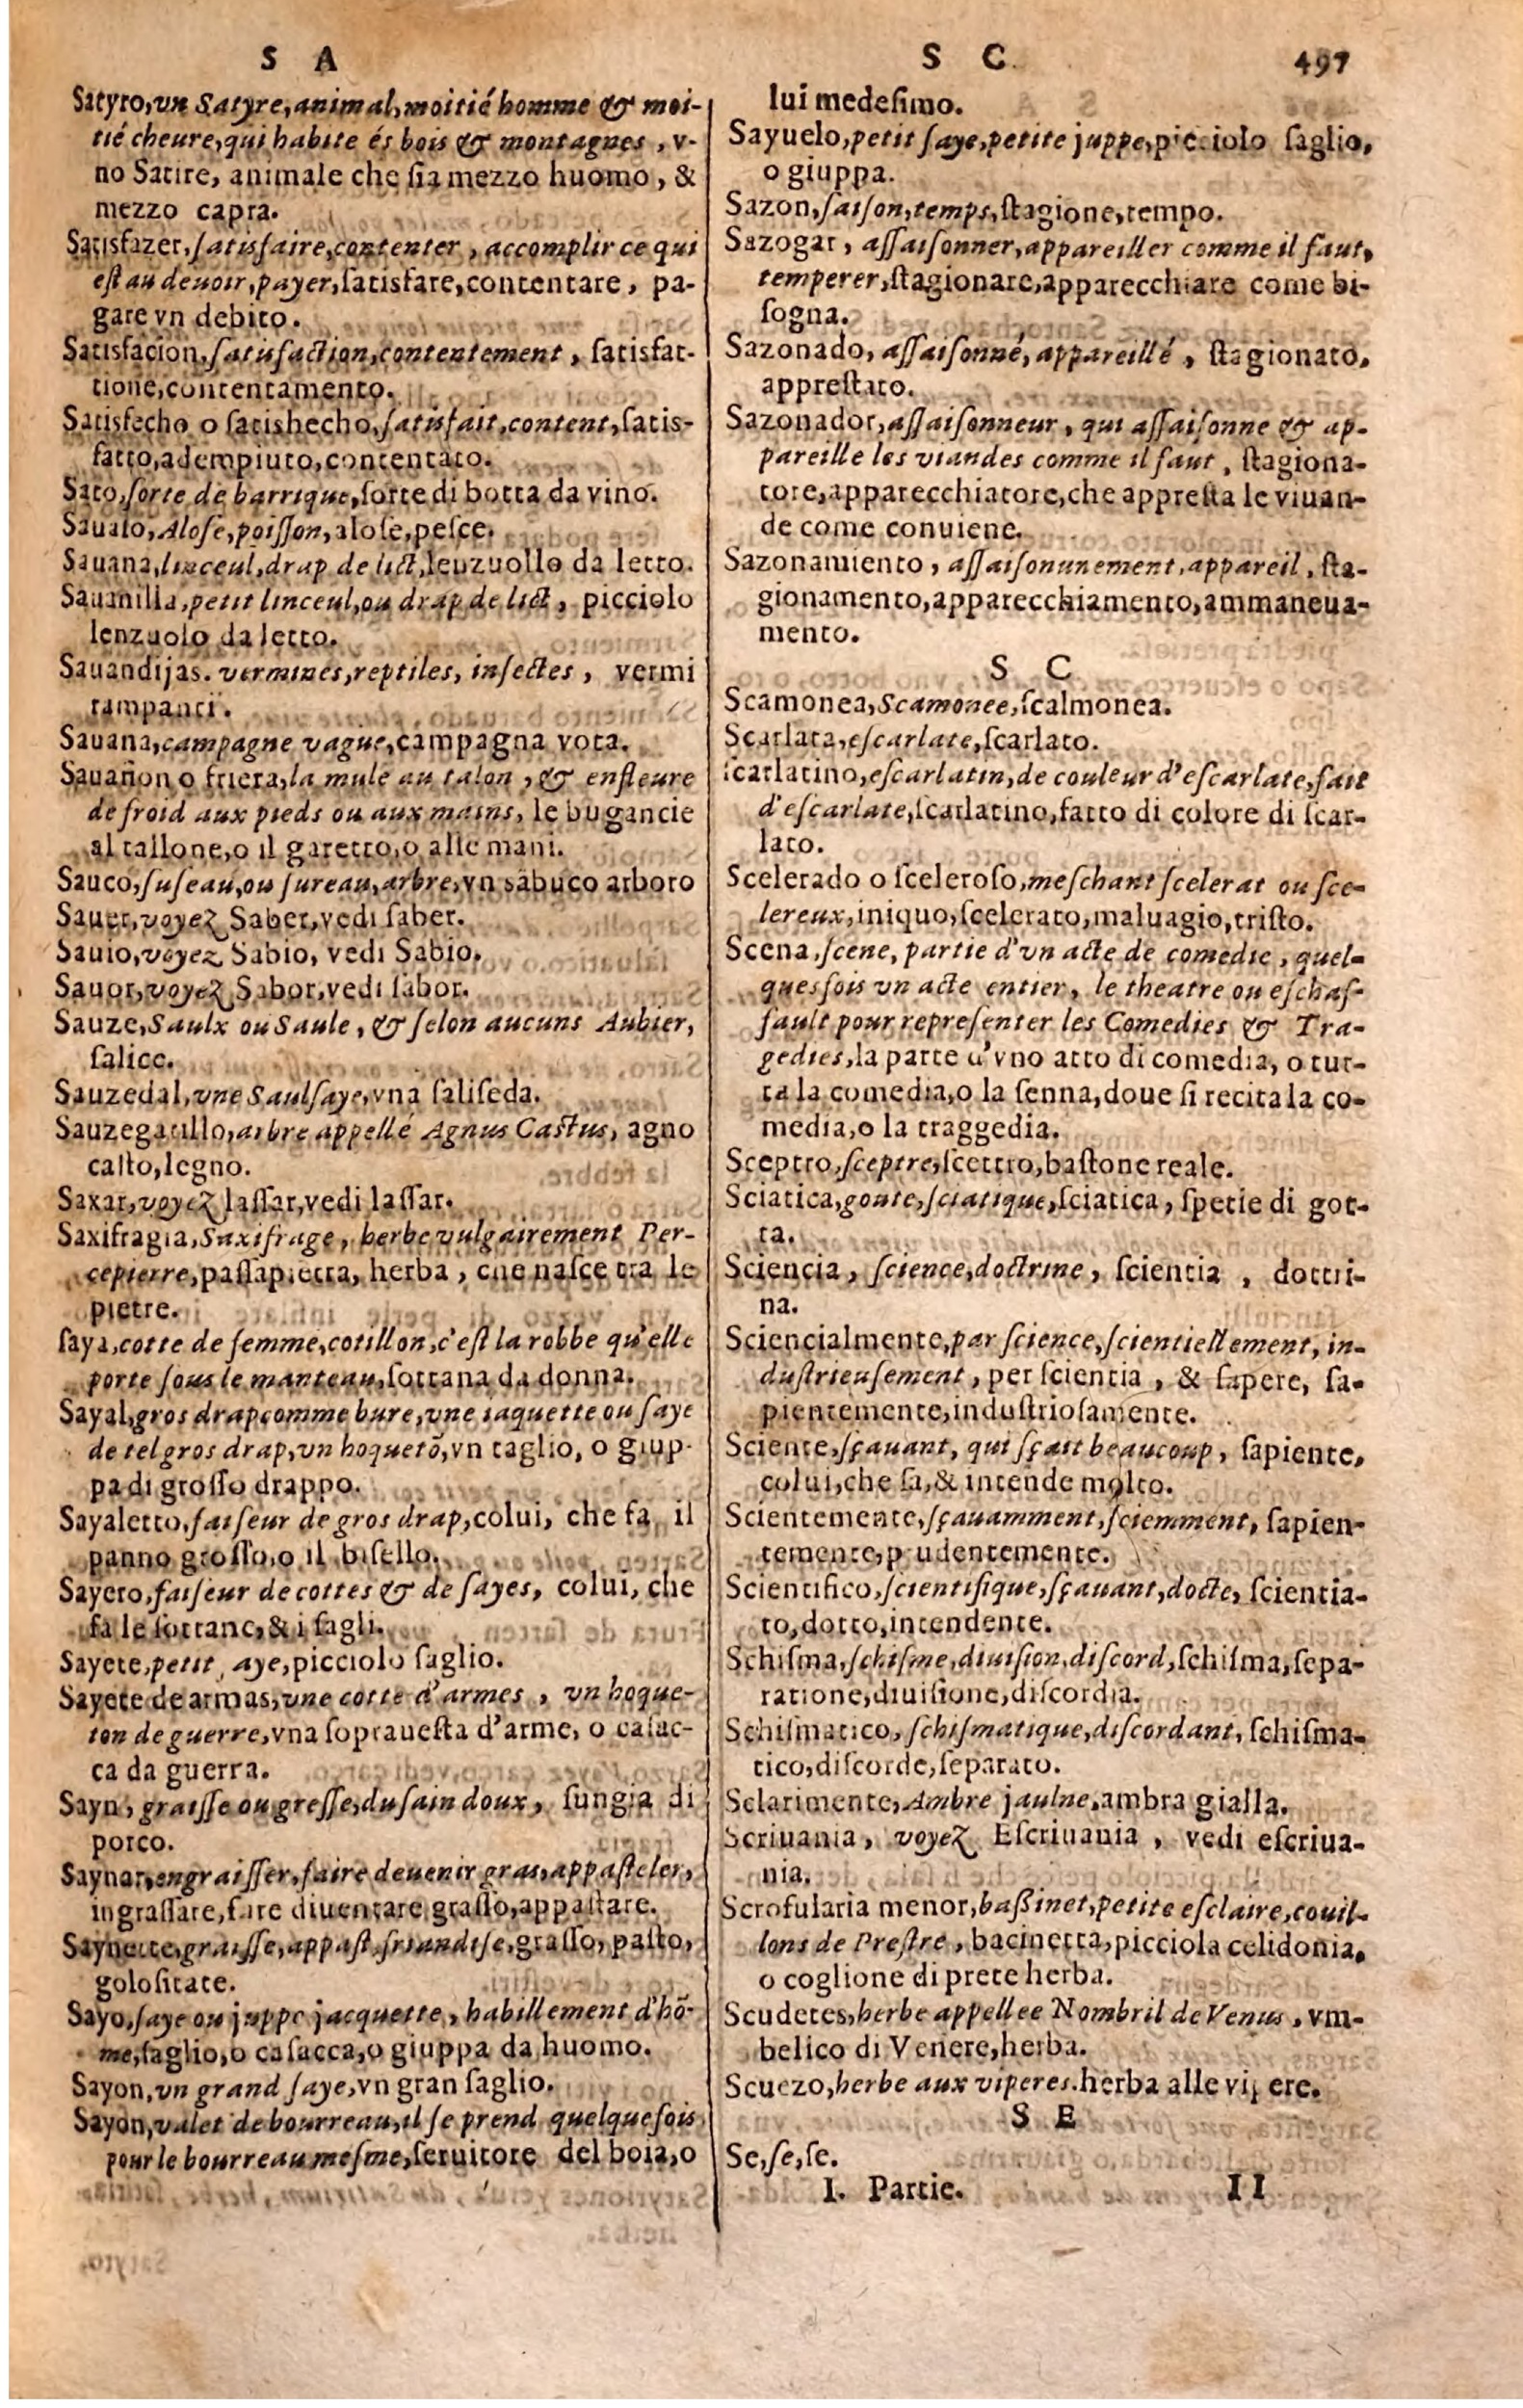 S A
Satyro, vn Satyre, animal, moitié homme & moi-
tié cheure, qui habite és bois & montagnes, v-
no Satire, animale che ſia mezzo huomo, &
mezzo capra.
Satisfazer, ſatisfaire, contenter, accomplir ce qui
eſt au deuoir, payer, ſatisfare, contentare, pa-
gare vn debito.
Satisfacion, ſatisfaction, contentement, ſatisfat-
tione, contentamento.
Satisfecho o ſatishecho, ſatisfait, content, ſatis-
fatto, adempiuto, contentato.
Sato, ſorte de barrique, ſorte di botta da vino.
Saualo, Aloſe, poiſſon, aloſe, peſce.
Sauana, linceul, drap de lict, lenzuollo da letto.
Sauanilla, petit linceul, ou drap de lict, picciolo
lenzuolo da letto.
Sauandijas. vermines, reptiles, inſectes, vermi
rampanti.
Sauana, campagne vague, campagna vota.
Sauañon o friera, la mule au talon, & enfleure
de froid aux pieds ou aux mains, le bugancie
al tallone, o il garetto, o alle mani.
Sauco, ſuſeau, ou ſureau, arbre, vn sabuco arboro
Sauer, voyez Saber, vedi ſaber.
Sauio, voyez Sabio, vedi Sabio.
Sauor, voyez Sabor, vedi ſabor.
Sauze, Saulx ou Saule, & ſelon aucuns Aubier,
ſalice.
Sauzedal, vne Saulſaye, vna ſaliſeda.
Sauzegatillo, arbre appellé Agnus Castus, agno
caſto, legno.
Saxar, voyez laſſar, vedi laſſar.
Saxifragia, Saxifrage, herbe vulgairement Per-
cepierre, paſſapietta, herba, che naſce tra le
pietre.
ſaya, cotte de femme, cotillon, c'eſt la robbe qu'elle
porte ſous le manteau, ſottana da donna.
Sayal, gros drap comme bure, vne iaquette ou ſaye
de tel gros drap, vn hoquetõ, vn taglio, o giup-
pa di groſſo drappo.
Sayaletto, faiſeur de gros drap, colui, che fa il
panno groſſo, o il biſello.
Sayero, faiſeur de cottes & de ſayes, colui, che
fa le ſottane, & i ſagli.
Sayete, petit aye, picciolo ſaglio.
Sayete de armas, vne cotte d'armes, vn hoque-
ton de guerre, vna ſoprauеſta d'arme, o caſac-
ca da guerra.
Sayn, graiſſe ou greſſe, du ſain doux, ſungia di
porco.
Saynar, engraiſſer, faire deuenir gras, appaſteler,
ingraſſare, fare diuentare graſſo, appaſtare.
Saynette, graiſſe, appaſt, friandiſe, graſſo, paſto,
goloſitate.
Sayo, ſaye ou juppe jacquette, habillement d'hõ-
me, ſaglio, o caſacca, o giuppa da huomo.
Sayon, vn grand ſaye, vn gran ſaglio.
Sayon, valet de bourreau, il ſe prend quelquefois
pour le bourreau meſme, ſeruitore del boia, o
S C
497
lui medeſimo.
Sayuelo, petit ſaye, petite juppe, picciolo ſaglio,
o giuppa.
Sazon, ſaiſon, temps, ſtagione, tempo.
Sazogar, aſſaiſonner, appareiller comme il faut,
temperer, ſtagionare, apparecchiare come bi-
ſogna.
Sazonado, aſſaiſonné, appareillé, ſtagionato,
appreſtato.
Sazonador, aſſaiſonneur, qui aſſaiſonne & ap-
pareille les viandes comme il faut, ſtagiona-
tore, apparecchiatore, che appreſta le viuan-
de come conuiene.
Sazonamiento, aſſaiſonunement, appareil, ſta-
gionamento, apparecchiamento, ammaneua-
mento.
S C
Scamonea, Scamonee, ſcalmonea.
Scarlata, eſcarlate, ſcarlato.
ſcarlatino, eſcarlatin, de couleur d'eſcarlate, fait
d'eſcarlate, ſcarlatino, fatto di colore di ſcar-
lato.
Scelerado o ſceleroſo, meſchant ſcelerat ou ſce-
lereux, iniquo, ſcelerato, maluagio, triſto.
Scena, ſcene, partie d'vn acte de comedie, quel-
quesfois vn acte entier, le theatre ou eſchaf-
fault pour repreſenter les Comedies & Tra-
gedies, la parte d'vno atto di comedia, o tut-
ta la comedia, o la ſenna, doue ſi recita la co-
media, o la traggedia.
Sceptro, ſceptre, ſcettro, baſtone reale.
Sciatica, goute, ſciatique, ſciatica, ſpetie di got-
ta.
Sciencia, ſcience, doctrine, ſcientia, dottri-
na.
Sciencialmente, par ſcience, ſcientiellement, in-
duſtrieuſement, per ſcientia, & ſapere, ſa-
pientemente, induſtrioſamente.
Sciente, ſçauant, qui ſçait beaucoup, ſapiente,
colui, che ſa, & intende molto.
Scientemente, ſçauamment, ſciemment, ſapien-
temente, prudentemente.
Scientifico, ſcientifique, ſçauant, docte, ſcientia-
to, dotto, intendente.
Schiſma, ſchiſme, diuiſion, diſcord, ſchiſma, ſepa-
ratione, diuiſione, diſcordia.
Schiſmatico, ſchiſmatique, diſcordant, ſchiſma-
tico, diſcorde, ſeparato.
Sclarimente, Ambre jaulne, ambra gialla.
Scriuania, voyez Eſcriuania, vedi eſcriua-
nia.
Scrofularia menor, baßinet, petite eſclaire, couil-
lons de Preſtre, bacinetta, picciola celidonia,
o coglione di prete herba.
Scudetes, herbe appellee Nombril de Venus, vm-
belico di Venere, herba.
Scuezo, herbe aux viperes. herba alle vipere.
S E
Se, ſe, ſe.
I. Partie.
II